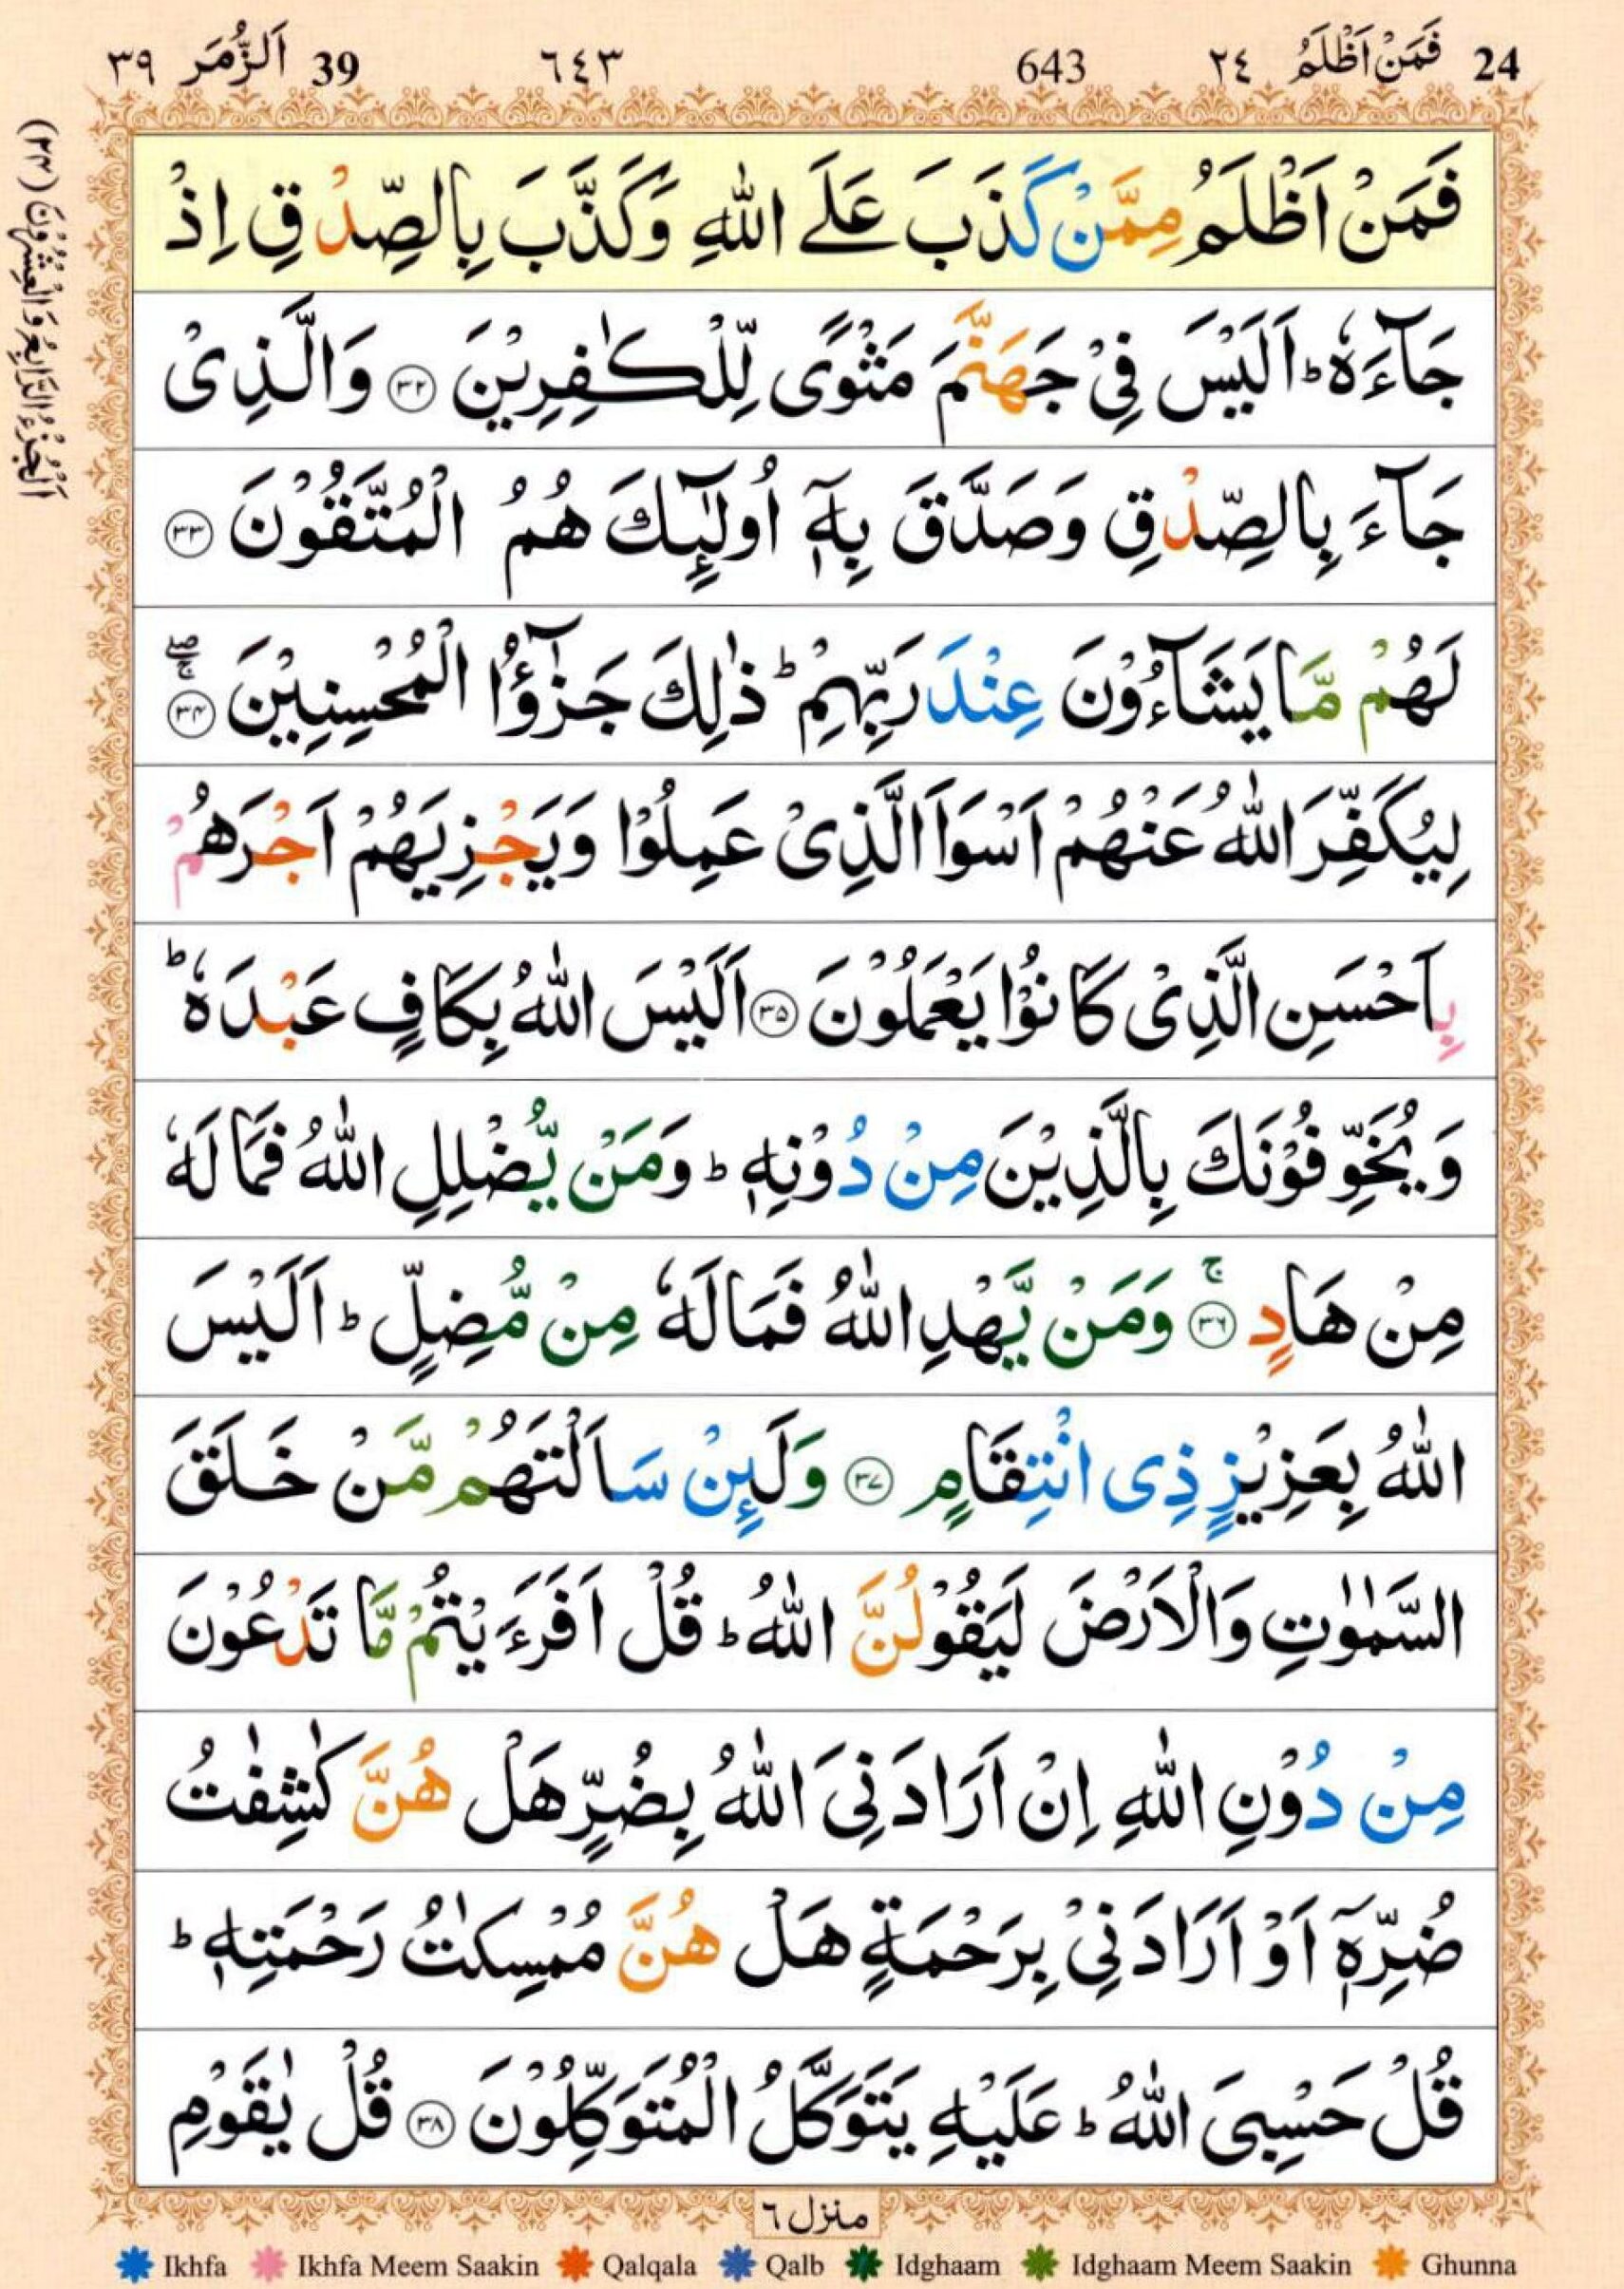 24 فَمَنْ اَظْلَمُ ٢٤ 643 ٦٤٣ 39 اَلزُّمَر ٣٩
اَلْجُزْءُ الرَّابِعُ وَالْعِشْرُوْنَ (٢٤)
فَمَنْ اَظْلَمُ مِمَّنْ كَذَبَ عَلَى اللّٰهِ وَكَذَّبَ بِالصِّدْقِ اِذْ
جَآءَهٗ ؕ اَلَيْسَ فِىْ جَهَنَّمَ مَثْوًى لِّلْكٰفِرِيْنَ ۝۳۲ وَالَّذِىْ
جَآءَ بِالصِّدْقِ وَصَدَّقَ بِهٖۤ اُولٰٓئِكَ هُمُ الْمُتَّقُوْنَ ۝۳۳
لَهُمْ مَّا يَشَآءُوْنَ عِنْدَ رَبِّهِمْ ؕ ذٰلِكَ جَزٰٓؤُا الْمُحْسِنِيْنَ ۝۳۴ۚۖ
لِيُكَفِّرَ اللّٰهُ عَنْهُمْ اَسْوَاَ الَّذِىْ عَمِلُوْا وَيَجْزِيَهُمْ اَجْرَهُمْ
بِاَحْسَنِ الَّذِىْ كَانُوْا يَعْمَلُوْنَ ۝۳۵ اَلَيْسَ اللّٰهُ بِكَافٍ عَبْدَهٗ ؕ
وَيُخَوِّفُوْنَكَ بِالَّذِيْنَ مِنْ دُوْنِهٖ ؕ وَمَنْ يُّضْلِلِ اللّٰهُ فَمَا لَهٗ
مِنْ هَادٍ ۝۳۶ۚ وَمَنْ يَّهْدِ اللّٰهُ فَمَا لَهٗ مِنْ مُّضِلٍّ ؕ اَلَيْسَ
اللّٰهُ بِعَزِيْزٍ ذِى انْتِقَامٍ ۝۳۷ وَلَئِنْ سَاَلْتَهُمْ مَّنْ خَلَقَ
السَّمٰوٰتِ وَالْاَرْضَ لَيَقُوْلُنَّ اللّٰهُ ؕ قُلْ اَفَرَءَيْتُمْ مَّا تَدْعُوْنَ
مِنْ دُوْنِ اللّٰهِ اِنْ اَرَادَنِىَ اللّٰهُ بِضُرٍّ هَلْ هُنَّ كٰشِفٰتُ
ضُرِّهٖۤ اَوْ اَرَادَنِىْ بِرَحْمَةٍ هَلْ هُنَّ مُمْسِكٰتُ رَحْمَتِهٖ ؕ
قُلْ حَسْبِىَ اللّٰهُ ؕ عَلَيْهِ يَتَوَكَّلُ الْمُتَوَكِّلُوْنَ ۝۳۸ قُلْ يٰقَوْمِ
منزل ٦
Ikhfa Ikhfa Meem Saakin Qalqala Qalb Idghaam Idghaam Meem Saakin Ghunna